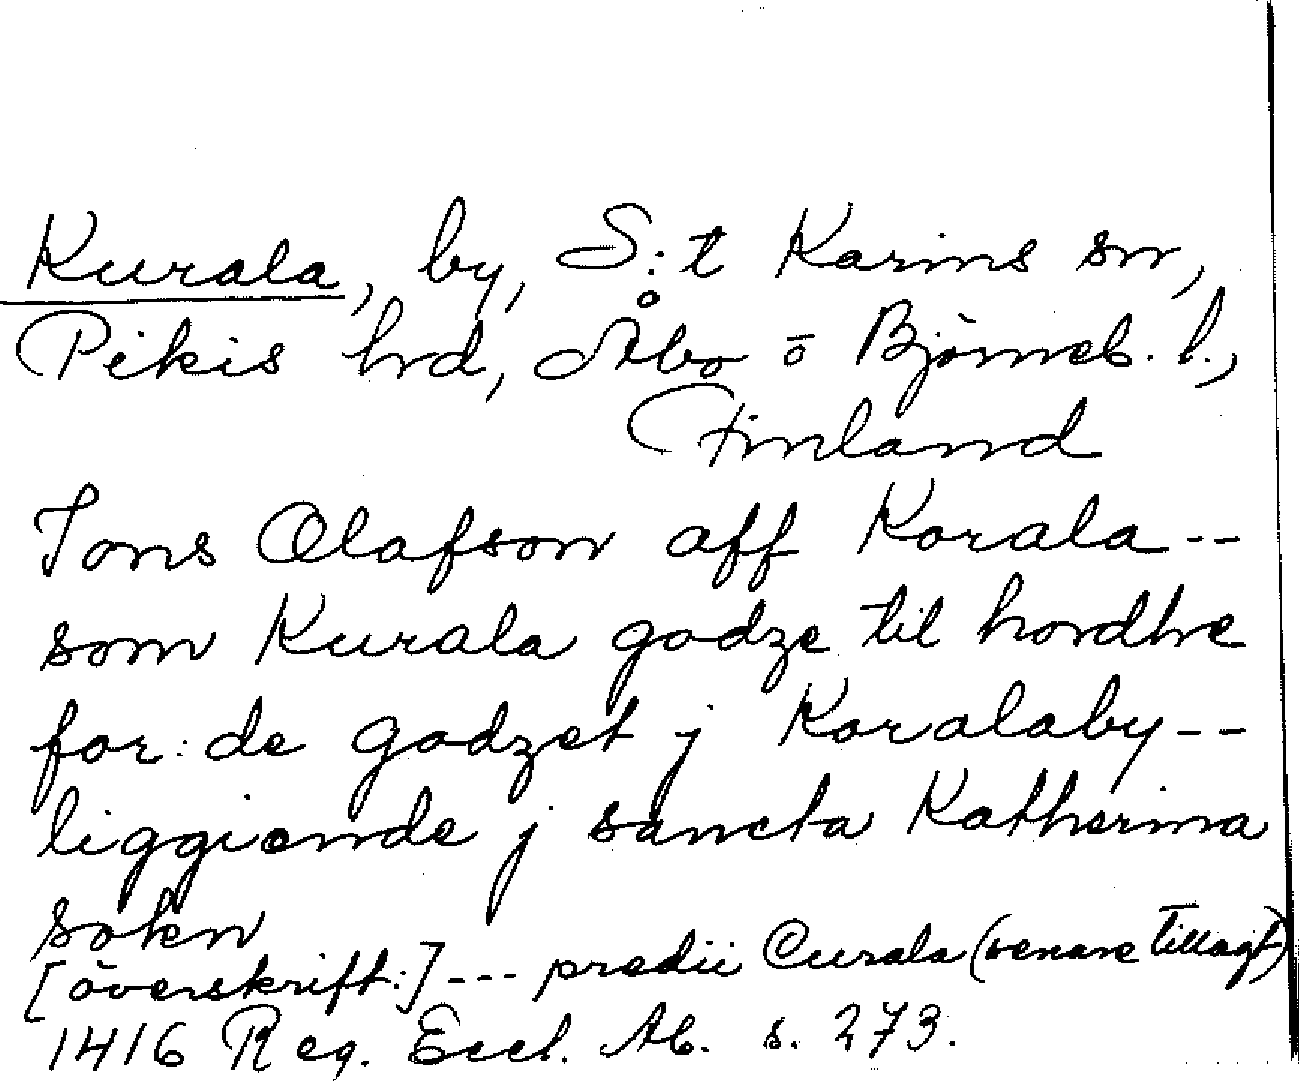 Kurala, by, S:t Karins sn,
Pikis hrd, Åbo o Björneb. l.,
Finland
Jons Olafson aff Korala --
som Kurala godze til hordhe
for: de godzet j Koralaby --
liggiende j sancta Katherina
sokn
[överskrift:] --- predii Curala (senare tillagt)
1416 Reg. Eccl. Ab. s. 273.